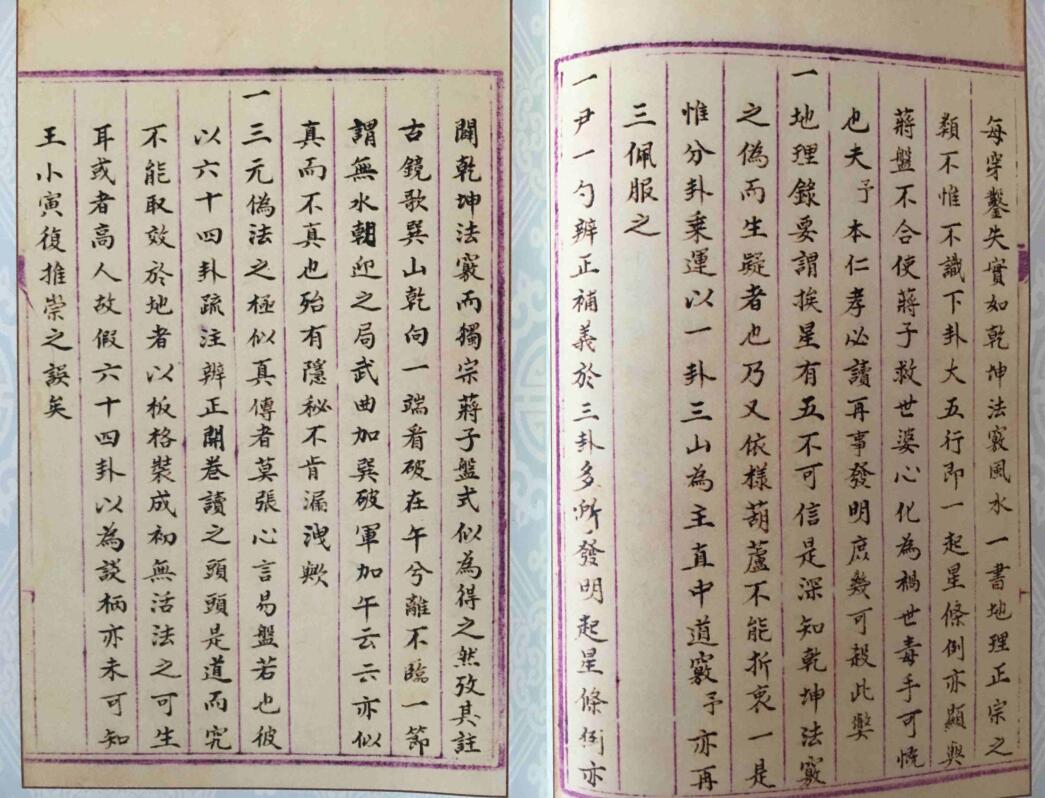 每穿鑿失實如乾坤法竅風水一書地理正宗之
類不惟不識下卦大五行即一起星條例亦顯與
蔣盤不合使蔣子救世婆心化為禍世毒手可慨
也夫予本仁孝必讀再事發明庶幾可殺此獘
一地理錄要謂挨星有五不可信是深知乾坤法竅
之偽而生疑者也乃又依樣葫蘆不能折衷一是
惟分卦乘運以一卦三山為主直中道竅予亦再
三佩服之
一尹一勺辨正補義於三卦多所發明起星條例亦
闢乾坤法竅而獨宗蔣子盤式似為得之然攷其註
古鏡歌巽山乾向一端看破在午兮離不臨一節
謂無水朝迎之局武曲加巽破軍加午云云亦似
真而不真也殆有隱秘不肯漏洩歟
一三元偽法之極似真傳者莫張心言易盤若也彼
以六十四卦疏注辨正開卷讀之頭頭是道而究
不能取效於地者以板格裝成初無活法之可生
耳或者高人故假六十四卦以為談柄亦未可知
王小寅復推崇之誤矣